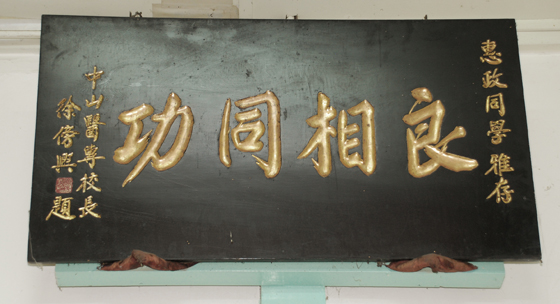 惠政同學雅存
良相同功
中山醫專校長
徐傍興題